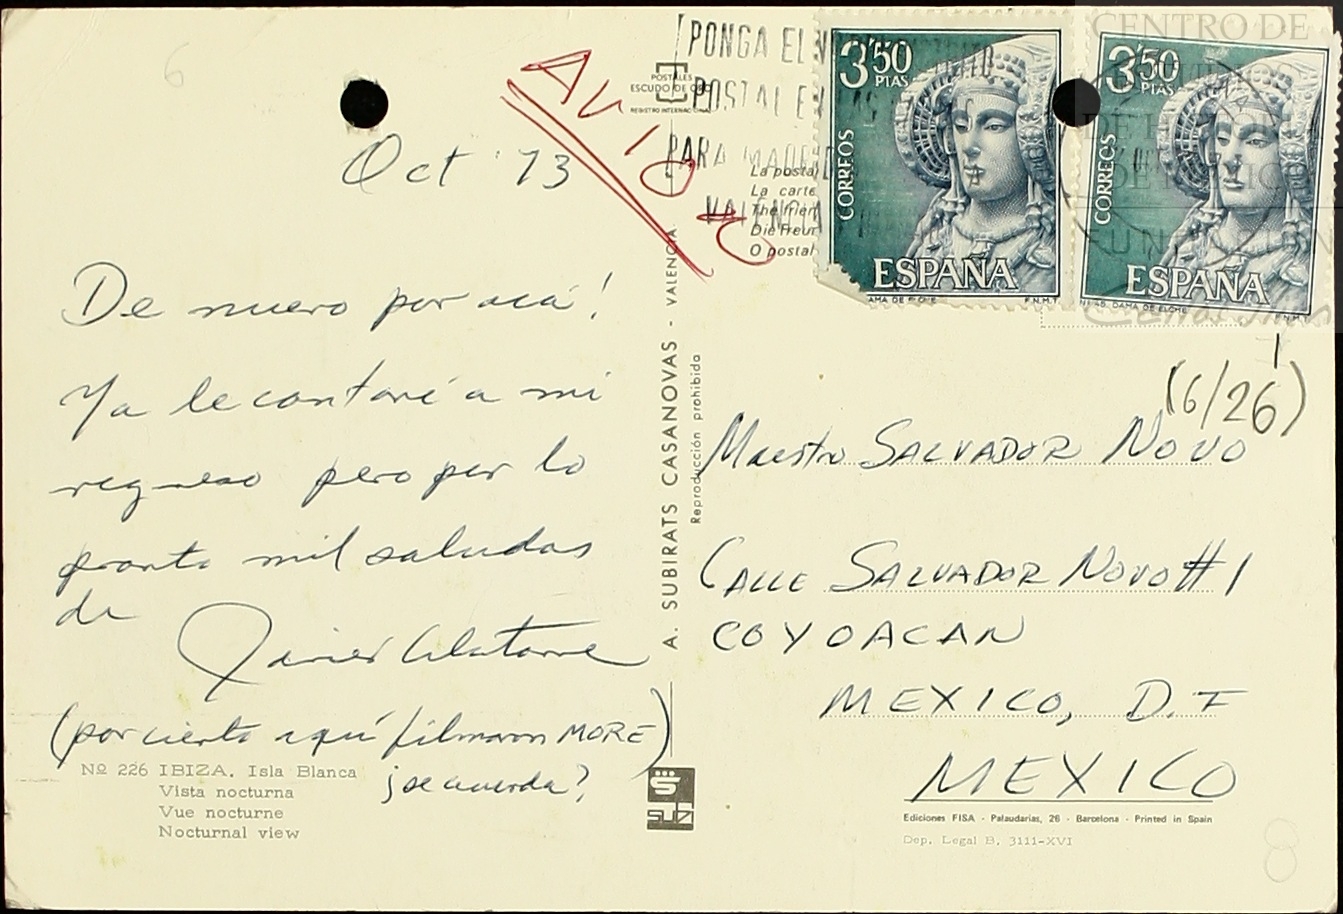 6
Oct 73
De nuevo por acá!
Ya le contaré a mi
regreso pero por lo
pronto mil saludos
de
Javier Alatorre
(por cierto aquí filmaron MORE)
¿se acuerda?
Nº 226 IBIZA. Isla Blanca
Vista nocturna
Vue nocturne
Nocturnal view
AVIÓN
POSTALES
ESCUDO DE ORO
REGISTRO INTERNACIONAL
PONGA EL
POSTAL EN
PARA MADRID
VALENCIA
La postal
La carte
The frien
Die Freun
O postal
A. SUBIRATS CASANOVAS - VALENCIA
Reproducción prohibida
subi
3'50
PTAS
CORREOS
ESPAÑA
DAMA DE ELCHE
F.N.M.T.
3'50
PTAS
CORREOS
ESPAÑA
DAMA DE ELCHE
F.N.M.T.
CENTRO DE
ESTUDIOS
DE HISTORIA
DE MÉXICO
FUNDACIÓN
Carlos Slim
(6/26)
Maestro SALVADOR NOVO
CALLE SALVADOR NOVO #1
COYOACAN
MEXICO, D.F
MEXICO
Ediciones FISA - Palaudarias, 26 - Barcelona - Printed in Spain
Dep. Legal B. 3111-XVI
8